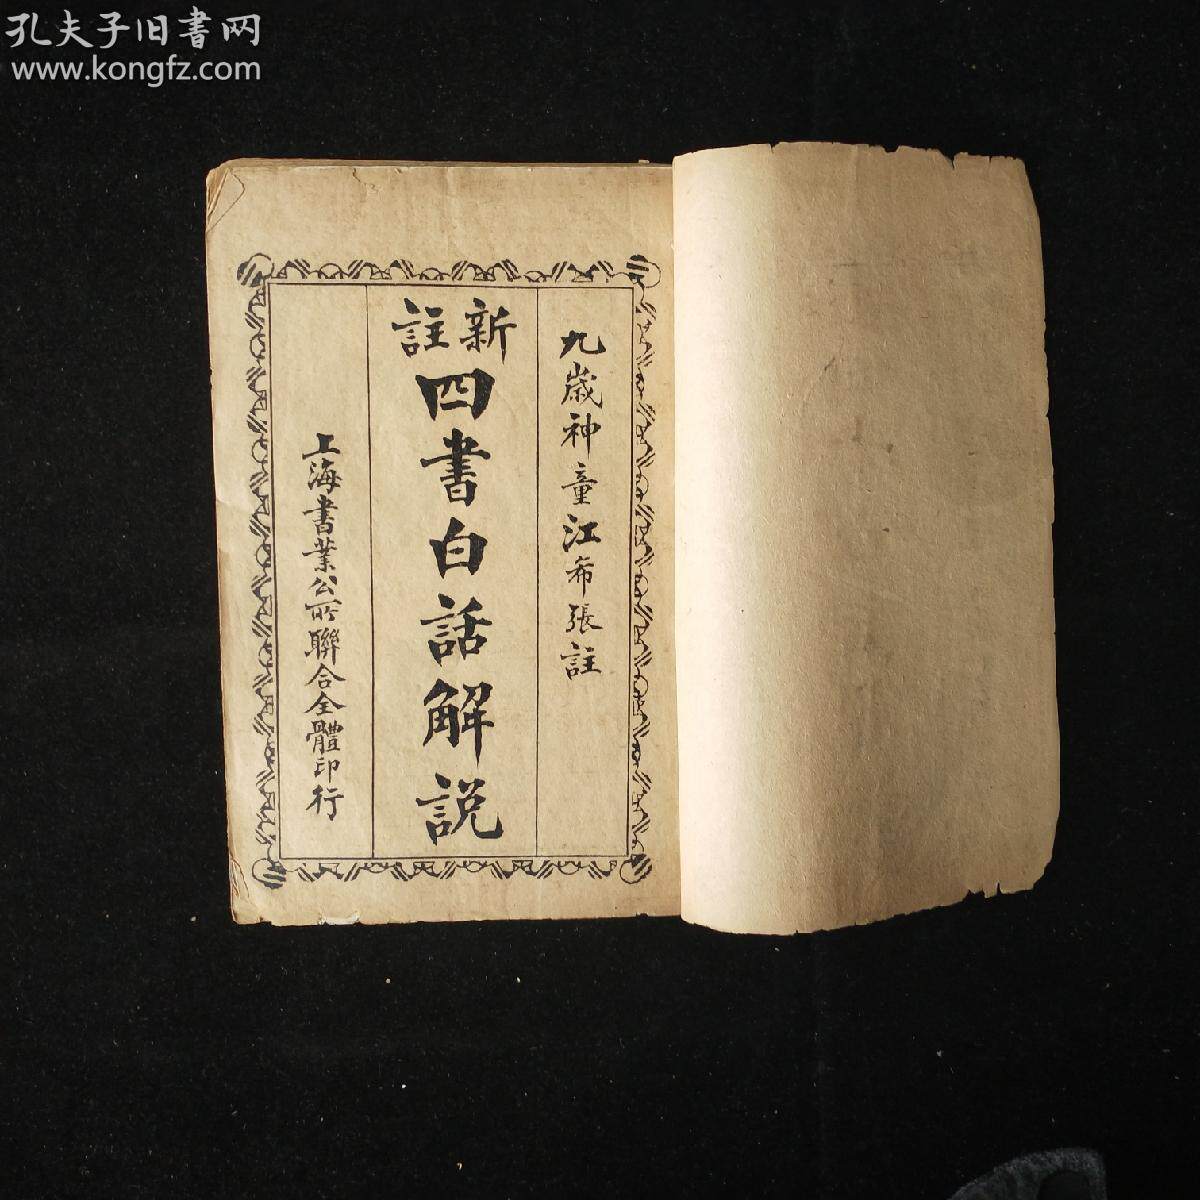 孔夫子旧書网
www.kongfz.com
九歲神童江希張註
新註
四書白話解説
上海書業公所聯合全體印行